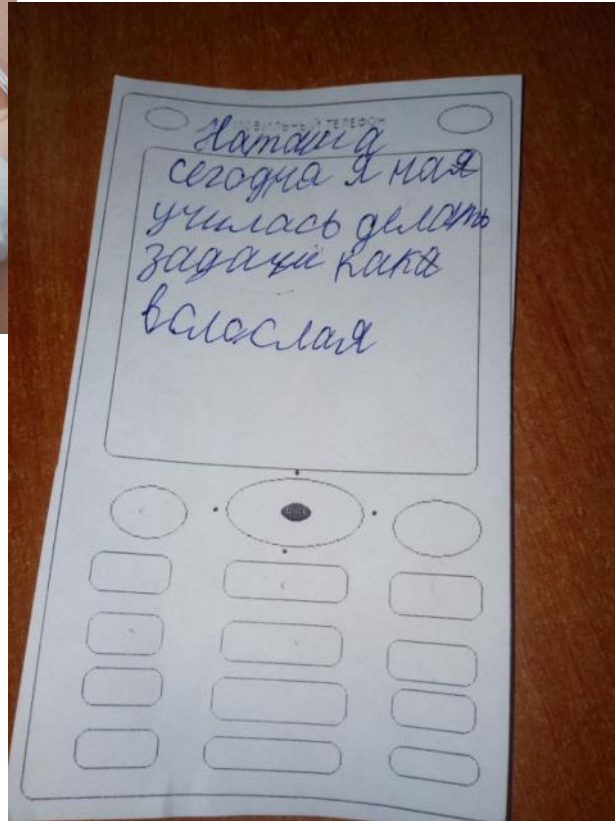 МОБИЛЬНЫЙ ТЕЛЕФОН
Наташа
сегодна я ная
училась делать
задачи кака
вслослая